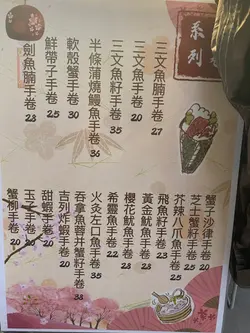 手卷系列
三文魚腩手卷 27
三文魚手卷 20
三文魚籽手卷 35
半條蒲燒鰻魚手卷 36
軟殼蟹手卷 30
鮮帶子手卷 25
劍魚腩手卷 28
蟹子沙律手卷 20
芝士蟹籽手卷 25
芥辣八爪魚手卷 25
飛魚籽手卷 23
黃金魷魚手卷 28
櫻花魷魚手卷 28
希靈魚手卷 28
火灸左口魚手卷 38
吞拿魚蓉并蟹籽手卷 38
吉列炸蝦手卷 20
甜蝦手卷 20
玉子手卷 20
蟹柳手卷 20